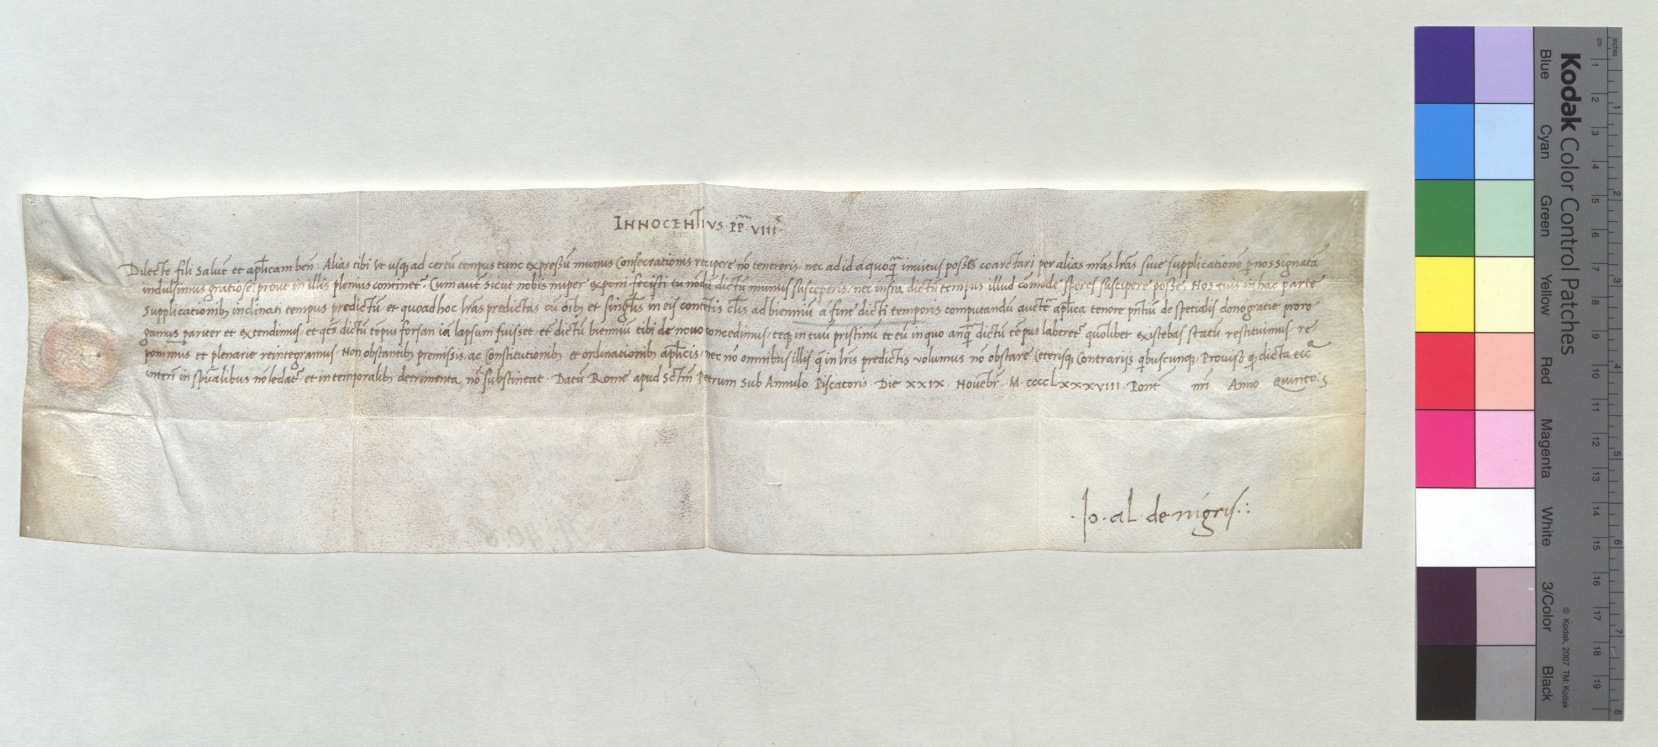 INNOCENTIVS · PP̄ · VIIIˢ
Dilecte fili Salut̄ et aplicam ben̄. Alias tibi ut usq̨ ad certū tempus tunc expressū munus Consecrationis recipere nō tenereris, nec ad id a quoq̄ invitus posses coarctari per alias nr̄as lr̄as sive supplicationē p̱ nos signatā
indulsimus gratiose: prout in illis plenius continet͛. Cum aut̄ sicut nobis nuper exponi fecisti tu nōdū dictū munus susceperis, nec infra dictū tempus illud cōmode speres suscipere posse. Nos tuis in hac parte
Supplicationib; inclinati tempus predictū et quoad hoc lr̄as predictas cū oīb; et singul̄is in eis contentis cl̄is ad bienniū a fine dicti temporis computandū auctē aplica tenore pn̄tiū de speciali dono gratie proro
gamus pariter et extendimus, et q̄ts dictū tēpus forsan iā lapsum fuisset et dictū bienniū tibi de novo concedimus, teq̨ in tuū pristinū et eū in quo anq̄ dictū tēpus laberet͛ quōlibet existebas statū restituimus re
ponimus et plenarie reintegramus. Non obstantib; premissis ac Constitutionib; et ordinationib; aplicis, nec nō omnibus illis q̄ in lr̄is predictis volumus nō obstare Ceterisq̨ Contrarijs q̨buscunq̨. Proviso q̨ dicta eccᵃ
interī in spūalibus nō ledat͛ et in temporalib; detrimenta nō substineat. Datū Rome apud Sctm̄ Petrum Sub Annulo Piscatoris Die XXIX Novebr̄. M.CCCCLXXXVIII. Pont̄ nr̄i Anno Quinto.
· Jo. al. de nigris .:
Kodak Color Control Patches
© Kodak, 2007 TM: Kodak
Blue
Cyan
Green
Yellow
Red
Magenta
White
3/Color
Black
cm 1 2 3 4 5 6 7 8 9 10 11 12 13 14 15 16 17 18 19
inches 1 2 3 4 5 6 7 8